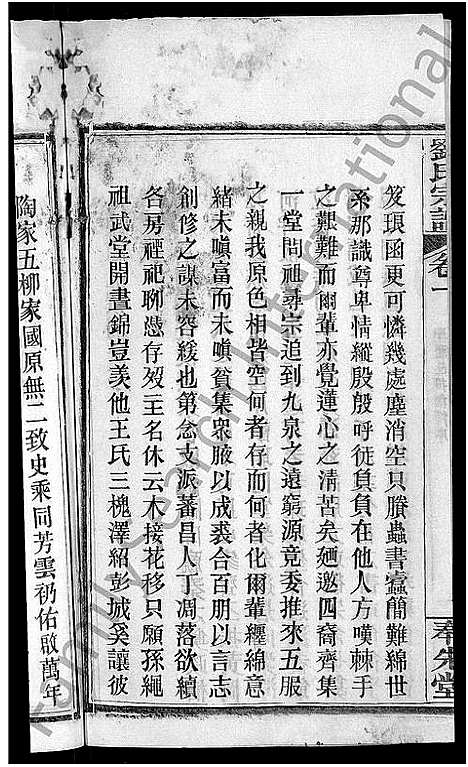 劉氏宗譜 卷一 奉先堂
笈琅函更可憐幾處塵消空只賸蟲書蠧簡難綿世
系那識尊卑情縱殷殷呼徒負負在他人方嘆棘手
之艱難而爾輩亦覺蓮心之清苦矣廼邀四裔齊集
一堂問祖尋宗追到九泉之遠窮源竟委推來五服
之親我原色相皆空何者存而何者化爾輩纒綿意
緒未嗔富而未嗔貧集衆腋以成裘合百朋以言志
創修之謀未容緩也第念支派蕃昌人丁凋落欲續
各房禋祀聊憑存歿主名休云木接花移只願孫繩
祖武堂開晝錦豈羨他王氏三槐澤紹彭城奚讓彼
陶家五柳家國原無二致史乘同芳雲礽佑啟萬年
family search international